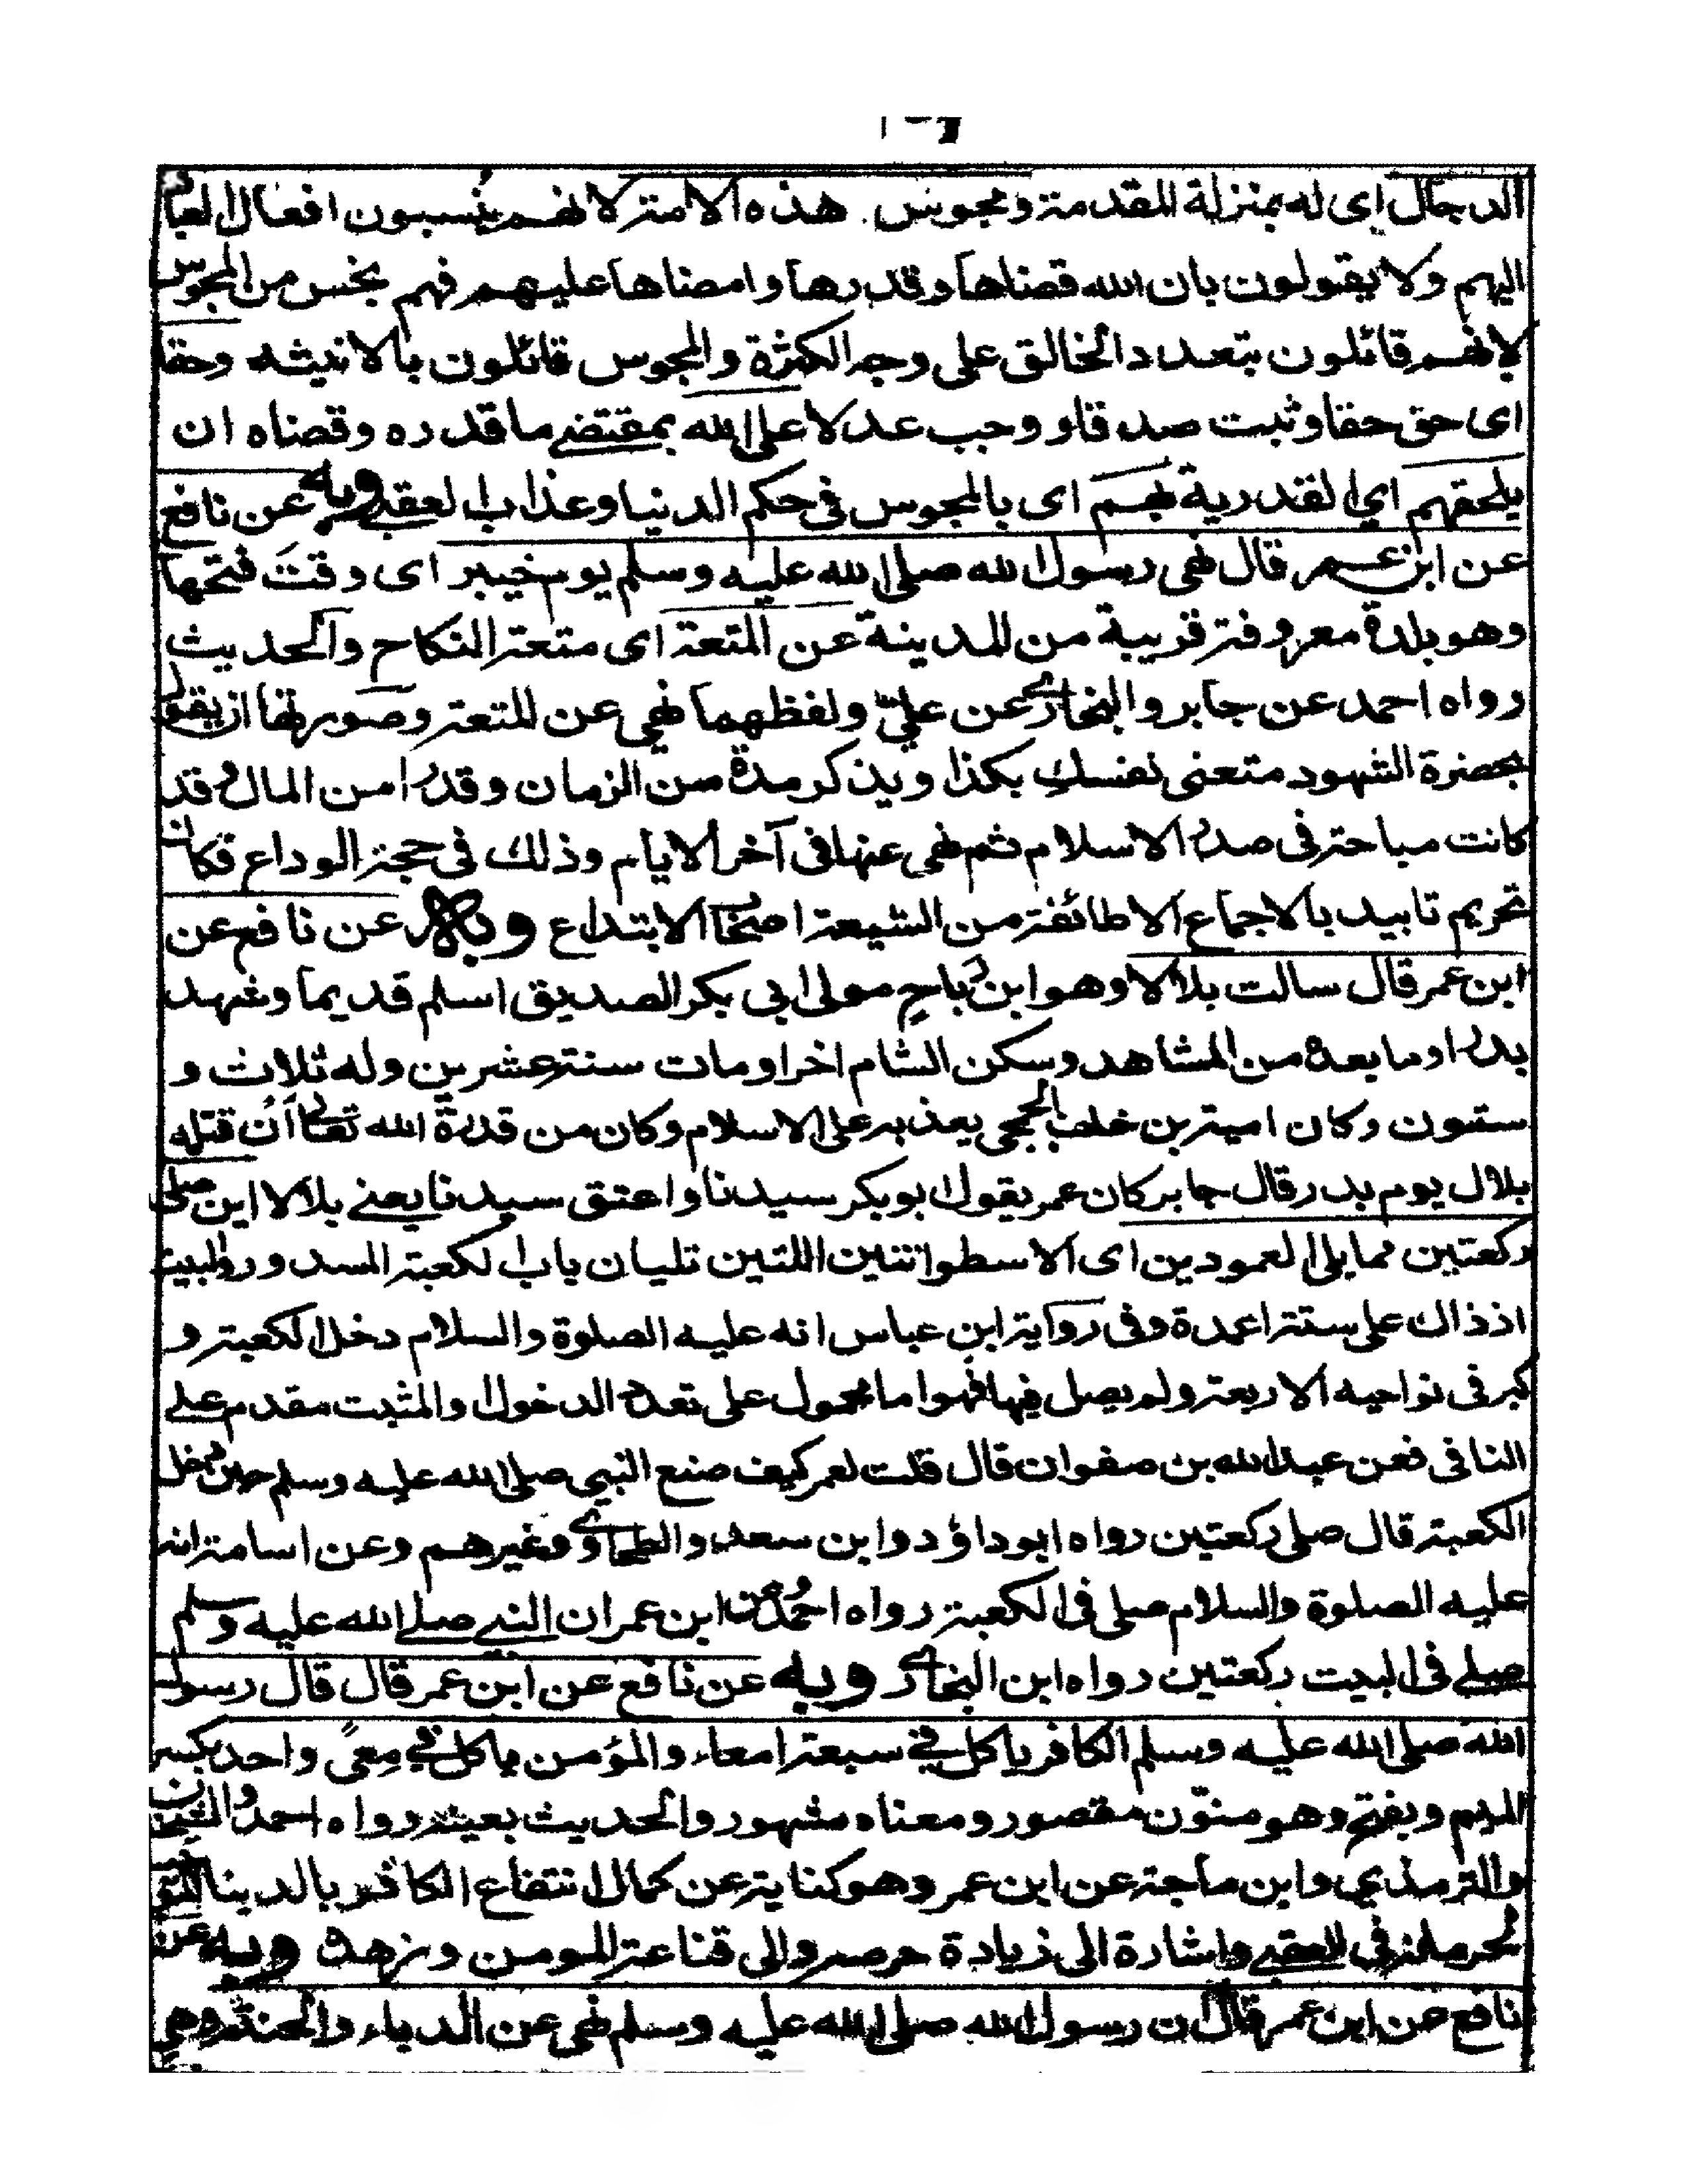 الدجال اى له بمنزلة المقدمة ومجوس هذه الامة لانهم ينسبون افعال العباد
اليهم ولا يقولون بان الله قضاها وقدرها وامضاها عليهم فهم بخس من المجوس
لانهم قائلون بتعدد الخالق على وجه الكثرة والمجوس قائلون بالاثنينية وحقا
اى حق حقا وثبت صدقا ووجب عدلا على الله بمقتضى ما قدره وقضاه ان
يلحقهم اي القدرية بهم اى بالمجوس فى حكم الدنيا وعذاب العقبى وبه عن نافع
عن ابن عمر قال نهى رسول الله صلى الله عليه وسلم يوم خيبر اى وقت فتحها
وهو بلدة معروفة قريبة من المدينة عن المتعة اى متعة النكاح والحديث
رواه احمد عن جابر والبخارى عن علي ولفظهما نهى عن المتعة وصورتها ان يقول
بحضرة الشهود متعنى نفسك بكذا ويذكر مدة من الزمان وقدرا من المال وقد
كانت مباحة فى صدر الاسلام ثم نهى عنها فى آخر الايام وذلك فى حجة الوداع فكان
تحريم تابيد بالاجماع الا طائفة من الشيعة اصحاب الابتداع وبه عن نافع عن
ابن عمر قال سالت بلالا وهو ابن رباح مولى ابى بكر الصديق اسلم قديما وشهد
بدرا وما بعده من المشاهد وسكن الشام اخرا ومات سنة عشرين وله ثلاث و
ستون وكان امية بن خلف الجمحى يعذبه على الاسلام وكان من قدرة الله تعالى ان قتله
بلال يوم بدر قال جابر كان عمر يقول ابو بكر سيدنا واعتق سيدنا يعنى بلالا اين صلى
ركعتين مما يلى العمودين اى الاسطوانتين اللتين تليان باب الكعبة المسدود والبيت
اذ ذاك على ستة اعمدة وفى رواية ابن عباس انه عليه الصلوة والسلام دخل الكعبة و
كبر فى نواحيه الاربعة ولم يصل فيها فهو اما محمول على تعدد الدخول والمثبت مقدم على
النافى فعن عبد الله بن صفوان قال قلت لعمر كيف صنع النبى صلى الله عليه وسلم حين دخل
الكعبة قال صلى ركعتين رواه ابو داؤد وابن سعد والطحاوى وغيرهم وعن اسامة انه
عليه الصلوة والسلام صلى فى الكعبة رواه احمد وعن ابن عمر ان النبى صلى الله عليه وسلم
صلى فى البيت ركعتين رواه ابن البخارى وبه عن نافع عن ابن عمر قال قال رسول
الله صلى الله عليه وسلم الكافر ياكل فى سبعة امعاء والمؤمن ياكل فى مِعىً واحد بكسر
الميم وبفتح وهو منوّن مقصور ومعناه مشهور والحديث بعينه رواه احمد والشيخان
والترمذي وابن ماجة عن ابن عمر وهو كناية عن كمال انتفاع الكافر بالدنيا
فى العقبى واشارة الى زيادة حرصه والى قناعة المومن وزهده وبه عن
نافع عن ابن عمر قال ان رسول الله صلى الله عليه وسلم نهى عن الدباء والحنتم وهى